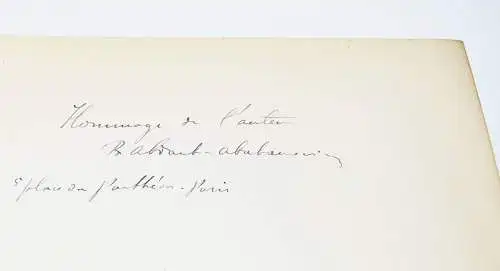 Hommage de l'auteur
B. Abdank-Abakanowicz
5 place du Panthéon - Paris